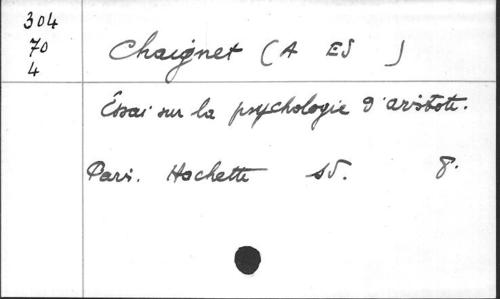 304
70
4
Chaignet (A ES )
Essai sur la psychologie d'aristote.
Paris. Hachette SD. 8.